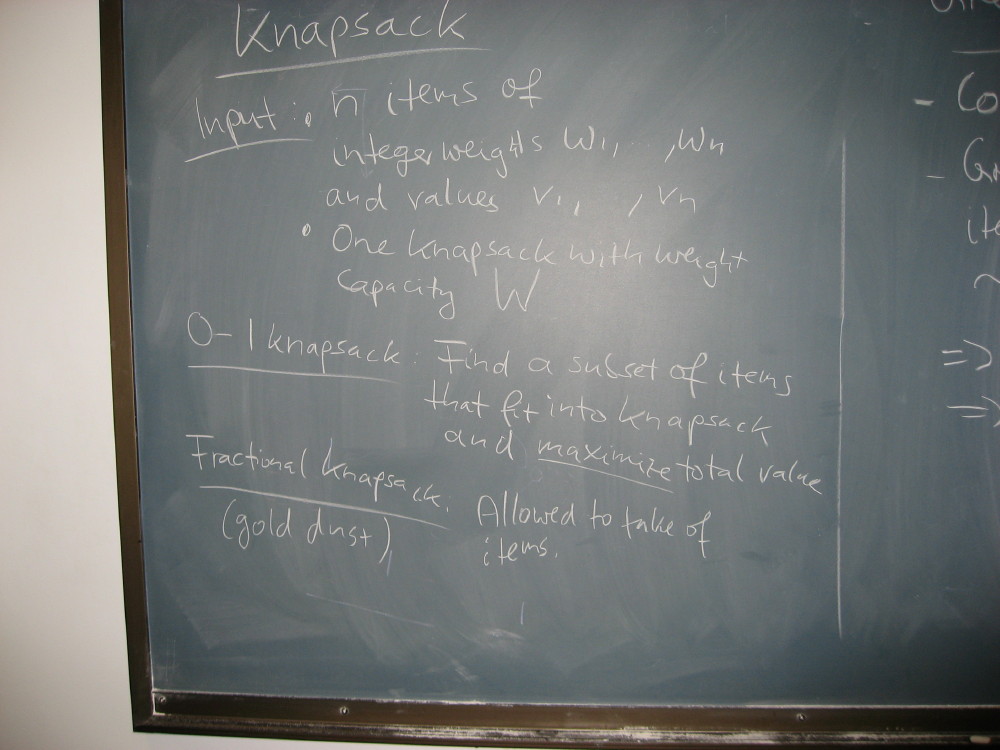 Knapsack
Input: • n items of
integer weights w1, ... , wn
and values v1, , vn
• One knapsack with weight
capacity W
0-1 knapsack: Find a subset of items
that fit into knapsack
and maximize total value
Fractional knapsack: Allowed to take of
(gold dust) items.
- Co
- Gr
ite
~
=>
=>